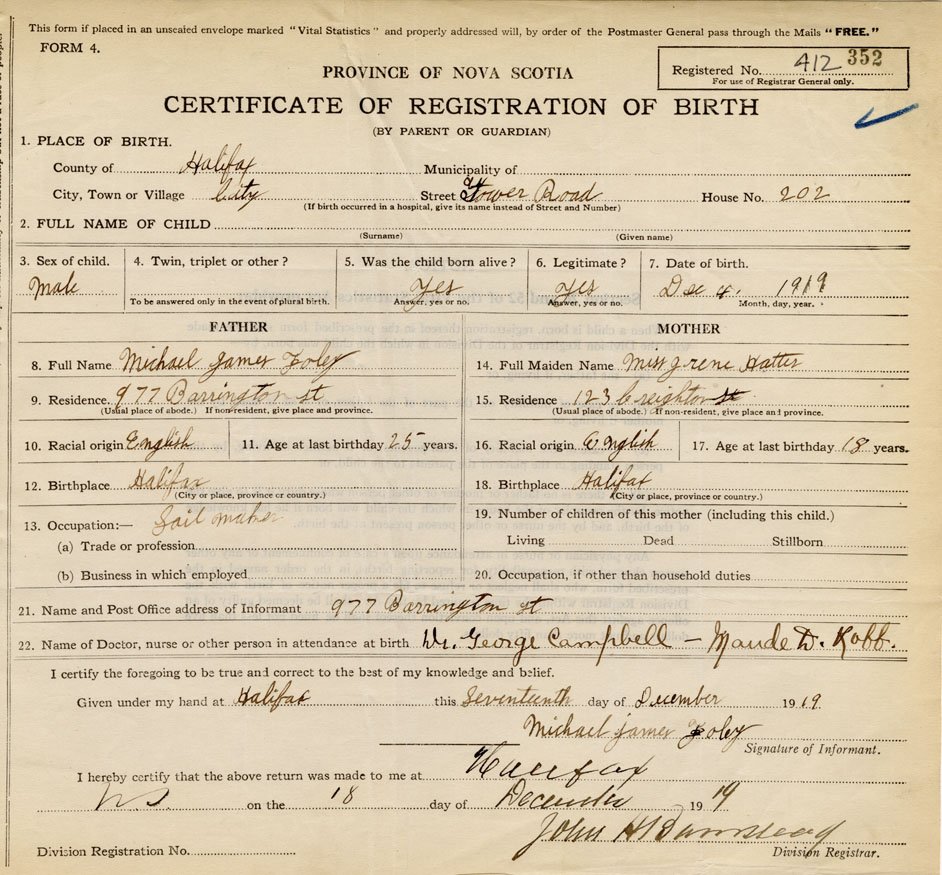 This form if placed in an unsealed envelope marked "Vital Statistics" and properly addressed will, by order of the Postmaster General pass through the Mails "FREE."
FORM 4.
PROVINCE OF NOVA SCOTIA
Registered No. 412 352
For use of Registrar General only.
CERTIFICATE OF REGISTRATION OF BIRTH
(BY PARENT OR GUARDIAN)
1. PLACE OF BIRTH.
County of Halifax Municipality of
City, Town or Village City Street Tower Road House No. 202
(If birth occurred in a hospital, give its name instead of Street and Number)
2. FULL NAME OF CHILD
(Surname) (Given name)
3. Sex of child. 4. Twin, triplet or other? 5. Was the child born alive? 6. Legitimate? 7. Date of birth.
Male Yes Yes Dec 4. 1919
To be answered only in the event of plural birth. Answer, yes or no. Answer, yes or no. Month, day, year.
FATHER MOTHER
8. Full Name Michael James Foley 14. Full Maiden Name Miss Irene Hatter
9. Residence. 977 Barrington st 15. Residence 123 Creighton st
(Usual place of abode.) If non-resident, give place and province. (Usual place of abode.) If non-resident, give place and province.
10. Racial origin English 11. Age at last birthday 25 years. 16. Racial origin English 17. Age at last birthday 18 years.
12. Birthplace Halifax 18. Birthplace Halifax
(City or place, province or country.) (City or place, province or country.)
13. Occupation:— Sail maker 19. Number of children of this mother (including this child.)
(a) Trade or profession Living Dead Stillborn
(b) Business in which employed 20. Occupation, if other than household duties
21. Name and Post Office address of Informant 977 Barrington st
22. Name of Doctor, nurse or other person in attendance at birth Dr. George Campbell – Maude D. Robb.
I certify the foregoing to be true and correct to the best of my knowledge and belief.
Given under my hand at Halifax this Seventeenth day of December 1919.
Michael James Foley
Signature of Informant.
I hereby certify that the above return was made to me at Halifax
NS on the 18 day of December 1919
John H Barnstead
Division Registration No. Division Registrar.